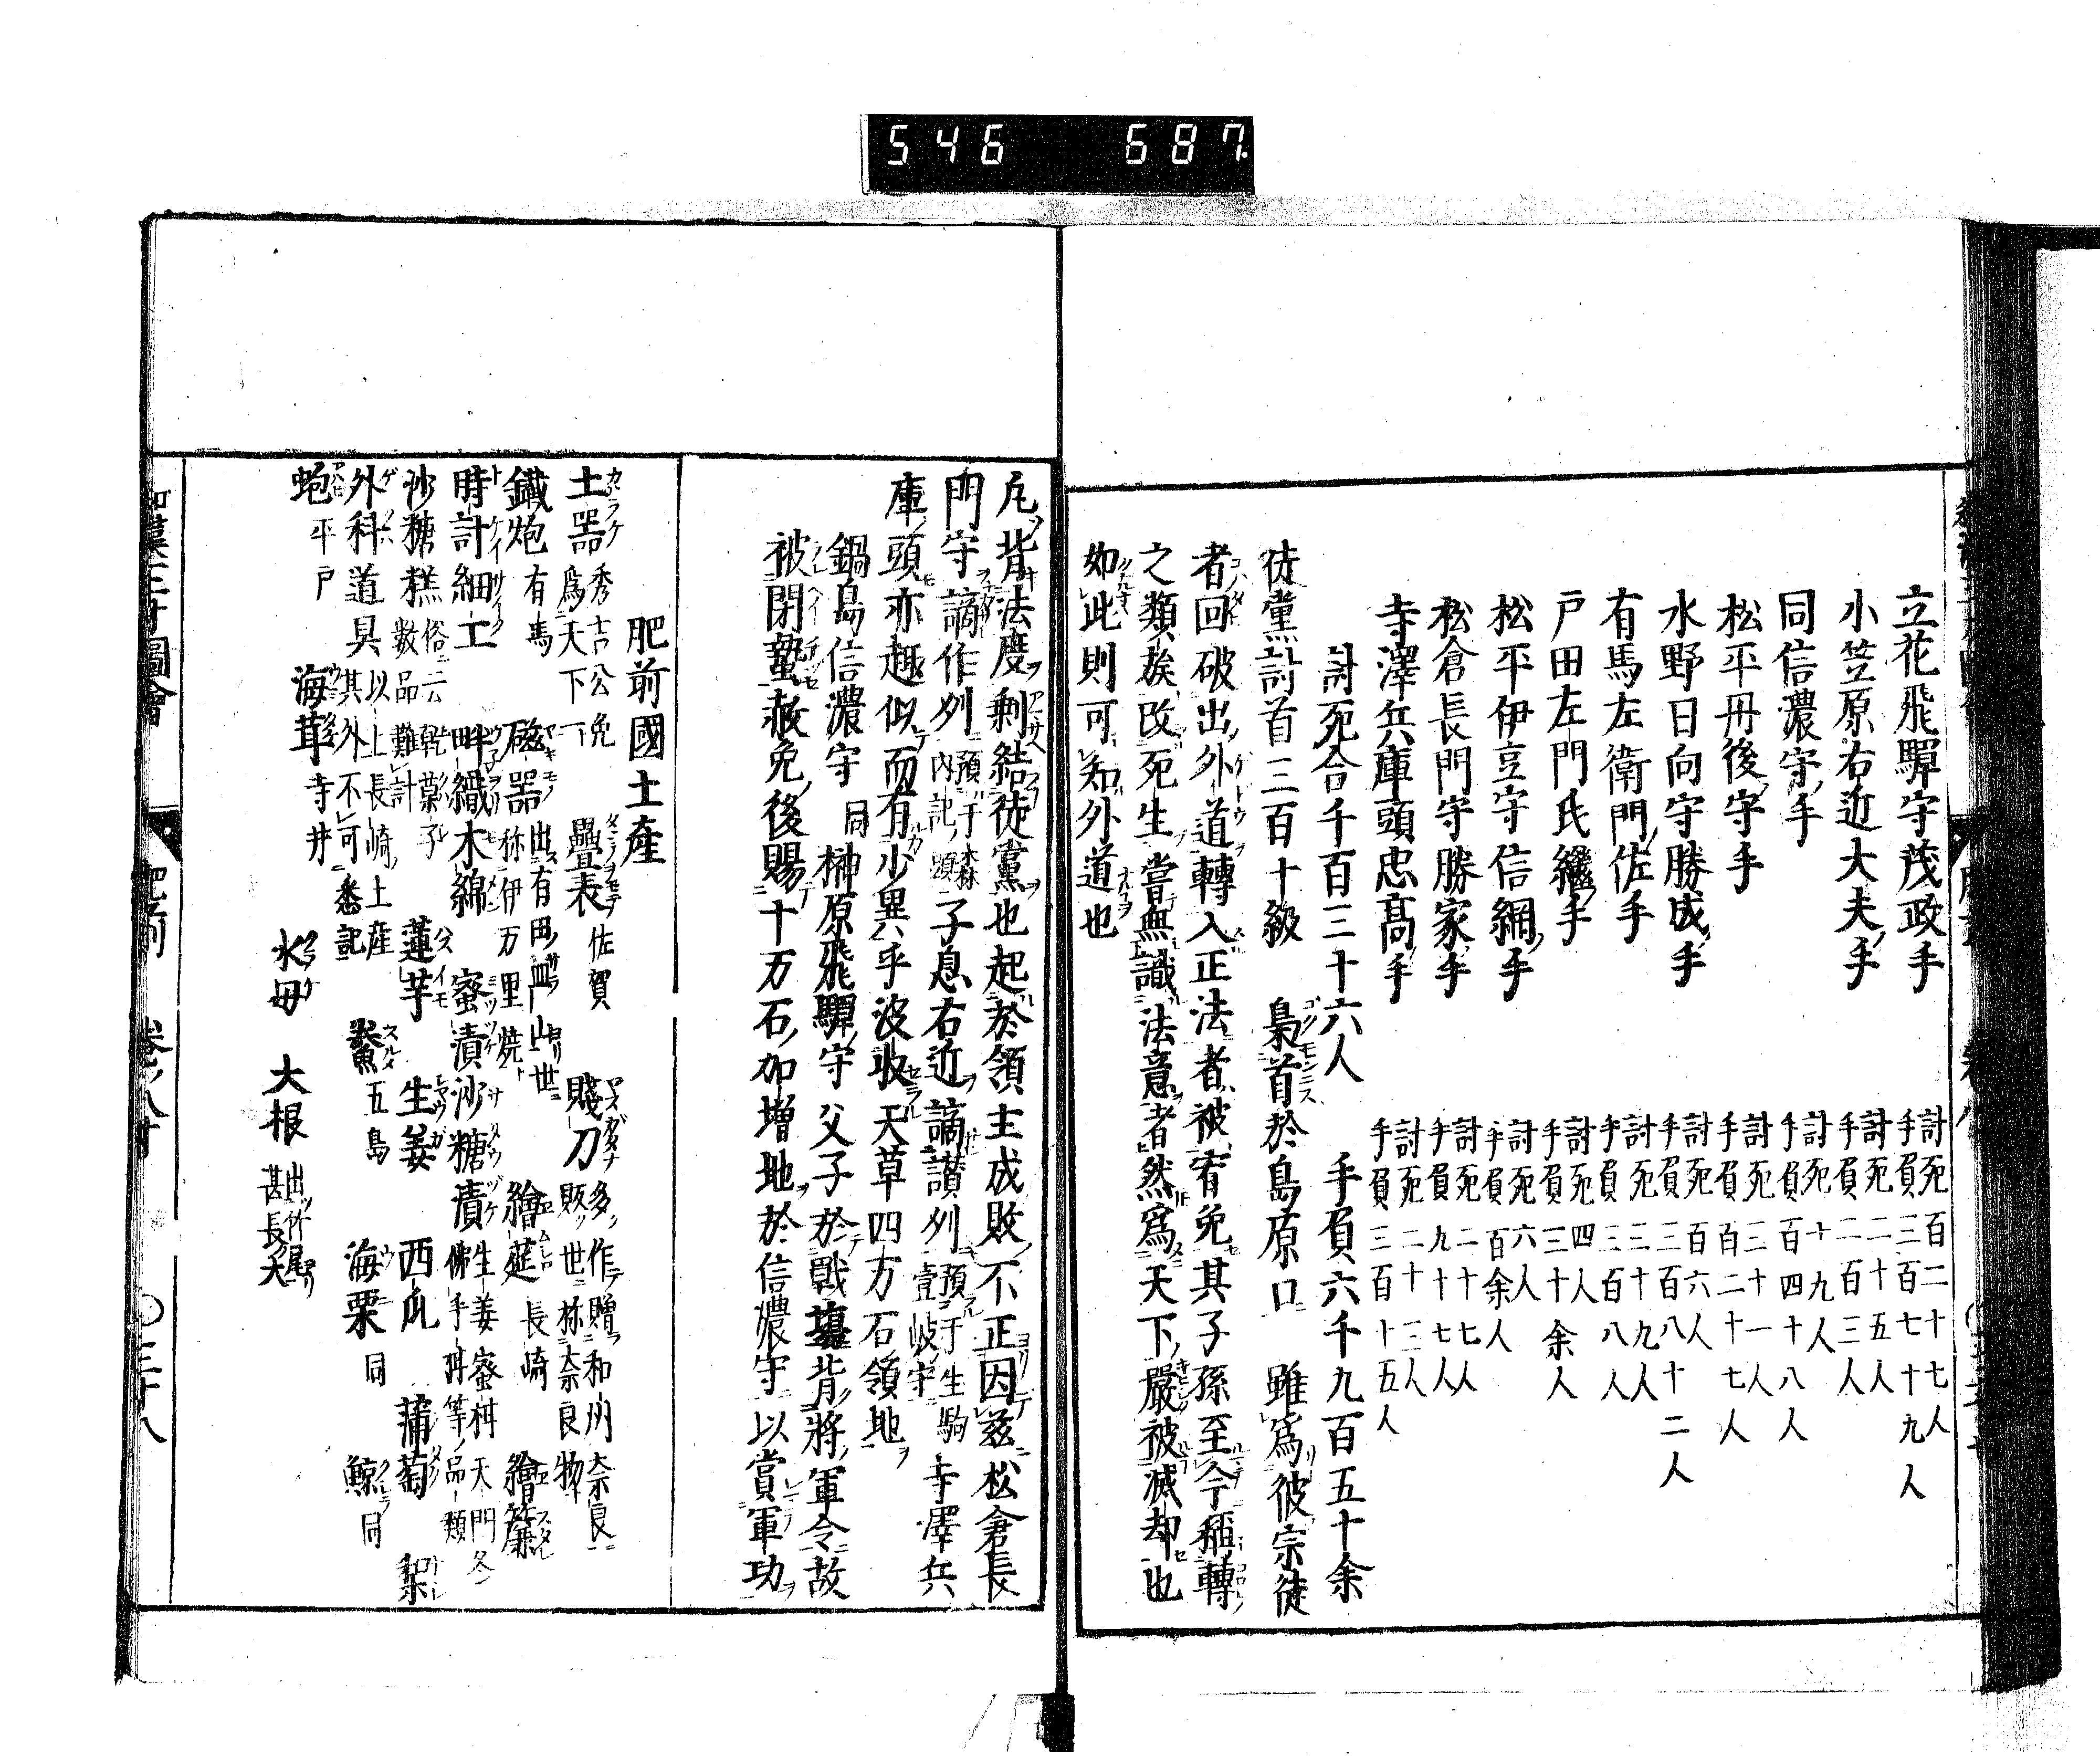 546 687.
立花飛驒守茂政手 討死百二十七人
手負三百七十九人
小笠原右近大夫手 討死二十五人
手負二百三人
同信濃守手 討死十九人
手負百四十八人
松平丹後守手 討死三十一人
手負百二十七人
水野日向守勝成手 討死百六人
手負三百八十二人
有馬左衛門佐手 討死三十九人
手負三百八人
戸田左門氏繼手 討死四人
手負三十余人
松平伊豆守信網手 討死六人
手負百余人
松倉長門守勝家手 討死二十七人
手負九十七人
寺澤兵庫頭忠髙手 討死二十三人
手負三百十五人
討死合千百三十六人 手負六千九百五十余
徒黨討首三百十級 梟首於島原口 雖爲彼宗徒
者回破出外道轉入正法者被宥免其子孫至今稱轉
之類族改死生當無識法意者然爲天下嚴被滅却也
如此則可知外道也
凡背法度剰結徒黨也起於領主成敗不正因茲松倉長
門守謫作州預于森内記頭子息右近謫讃州預于生駒壹岐守寺澤兵
庫頭亦趣似而有少異乎没收天草四万石領地
鍋島信濃守 同榊原飛驒守父子於戰塲背將軍令故
被閉蟄赦免後賜十万石加増地於信濃守以賞軍功
肥前國土產
土器秀吉公免爲天下一 疊表佐賀 賤刀多作贈和州奈良販世称奈良物
鐵炮有馬 磁器出有田皿山世称伊万里焼 繪莚長崎 繪簾
時計細工 畔織木綿 蜜漬沙糖漬生姜蜜柑天門冬佛手柑等品類
沙糖糕俗云乾菓子數品難計 蓮芋 生姜 西瓜 蒲萄 梨
外科道具以上長崎土産其外不可悉記 鯗五島 海栗同 鯨同
蚫平戸 海茸寺井 水母 大根出竹尾甚長大
和漢三才圖會 肥前 卷ノ八十 〇三十八